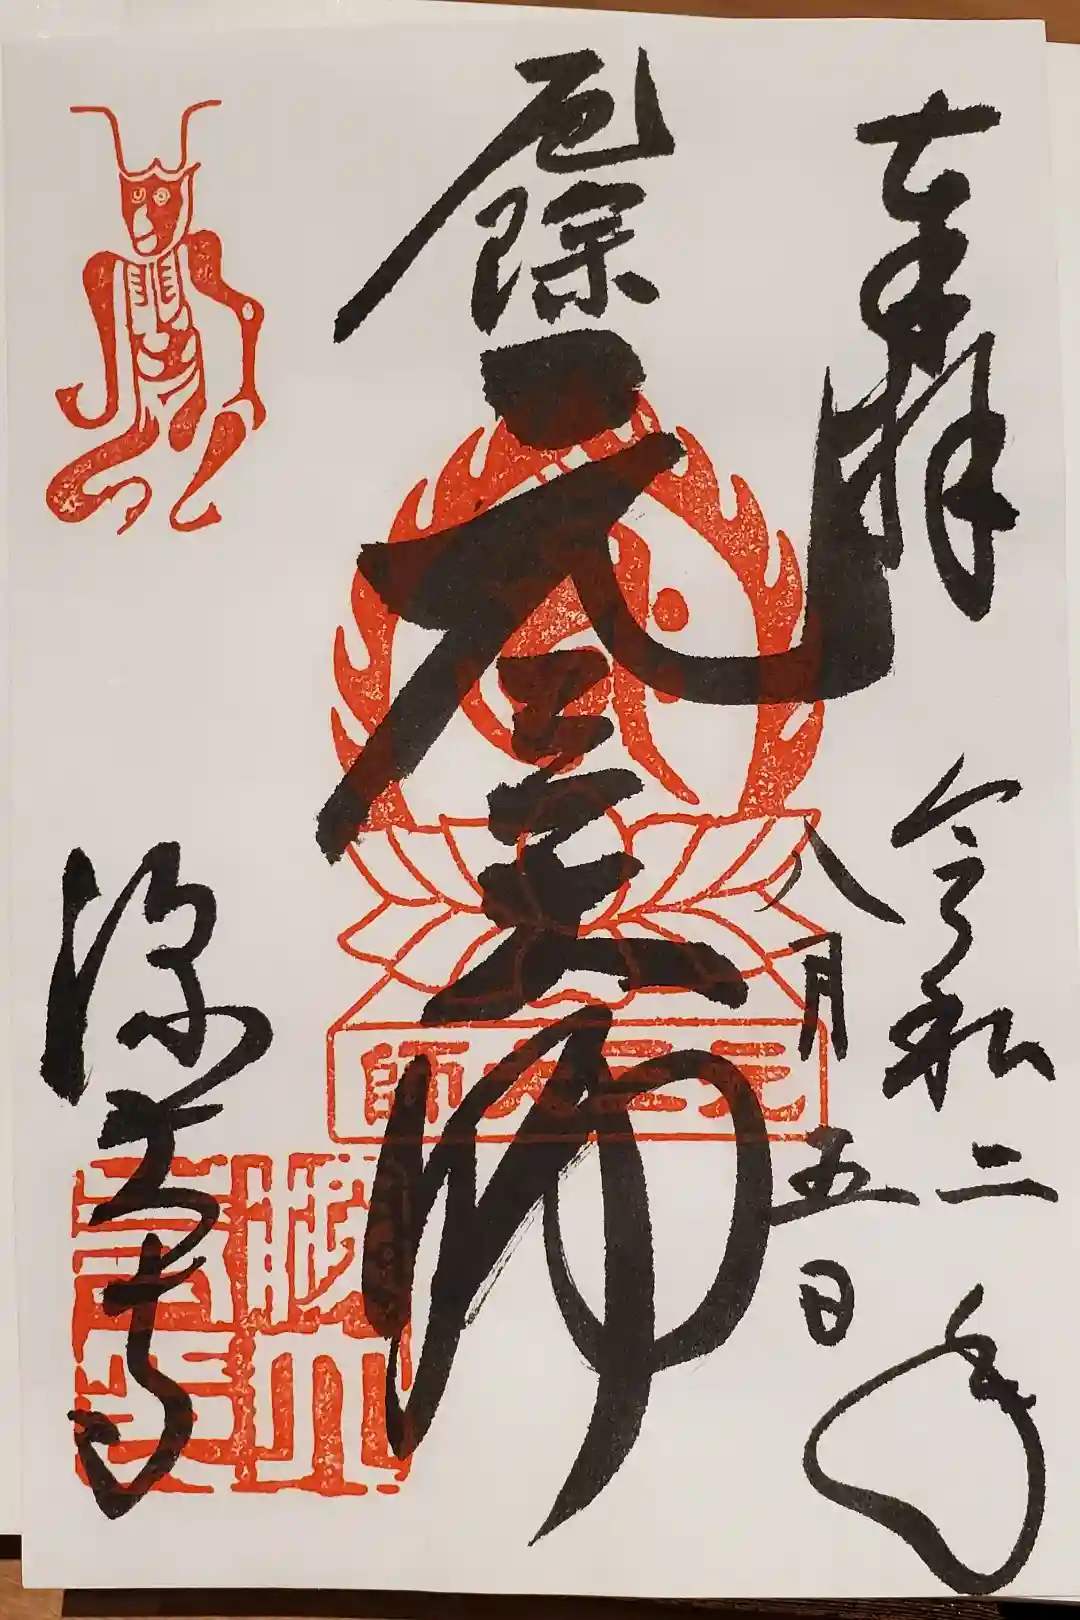 奉拝
令和二年
八月五日
厄除
元三大師
元三大師
深大寺